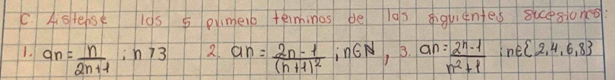 C. Listense los 5 primero terminos de las siguientes sucesiones:
1. an = n/(2n+1) ; n>3 2. an = (2n-1)/(n+1)² ; n∈N , 3. an = (2n-1)/(n²+1) ; n∈{2,4,6,8}